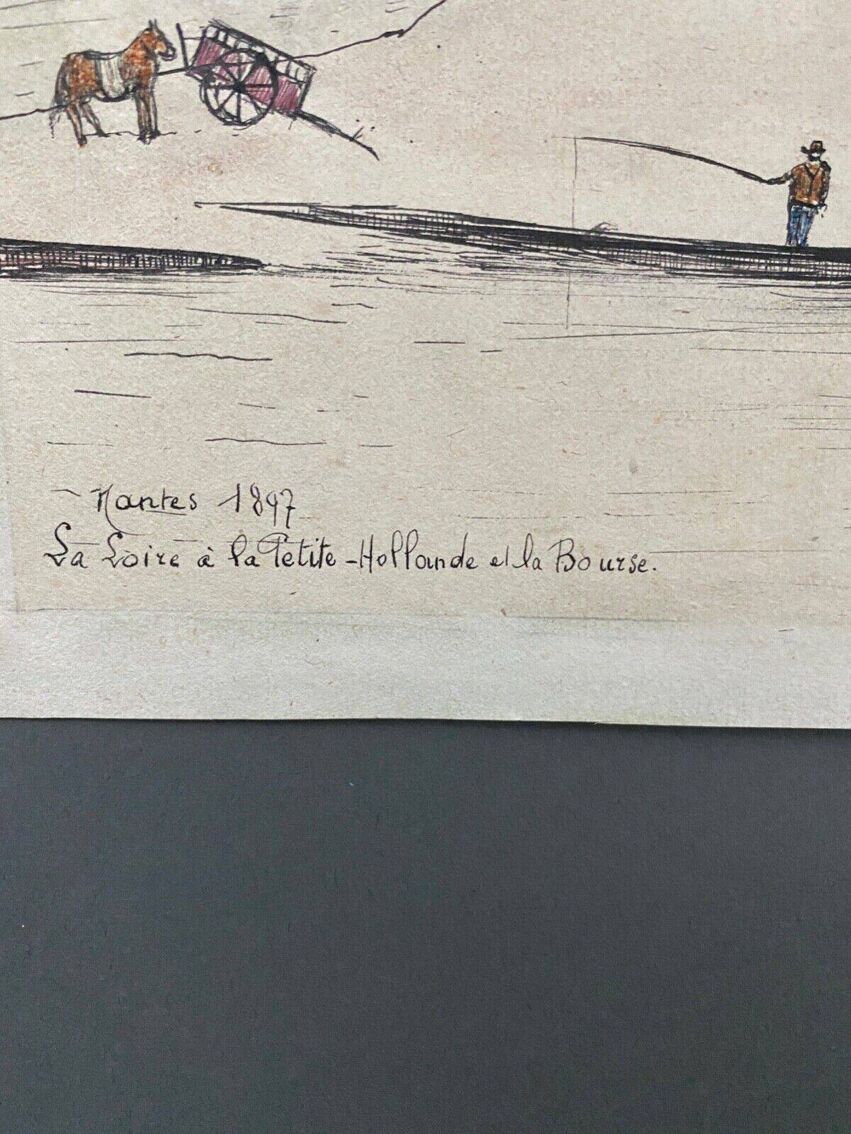 Nantes 1897
La Loire à la Petite-Hollande et la Bourse.